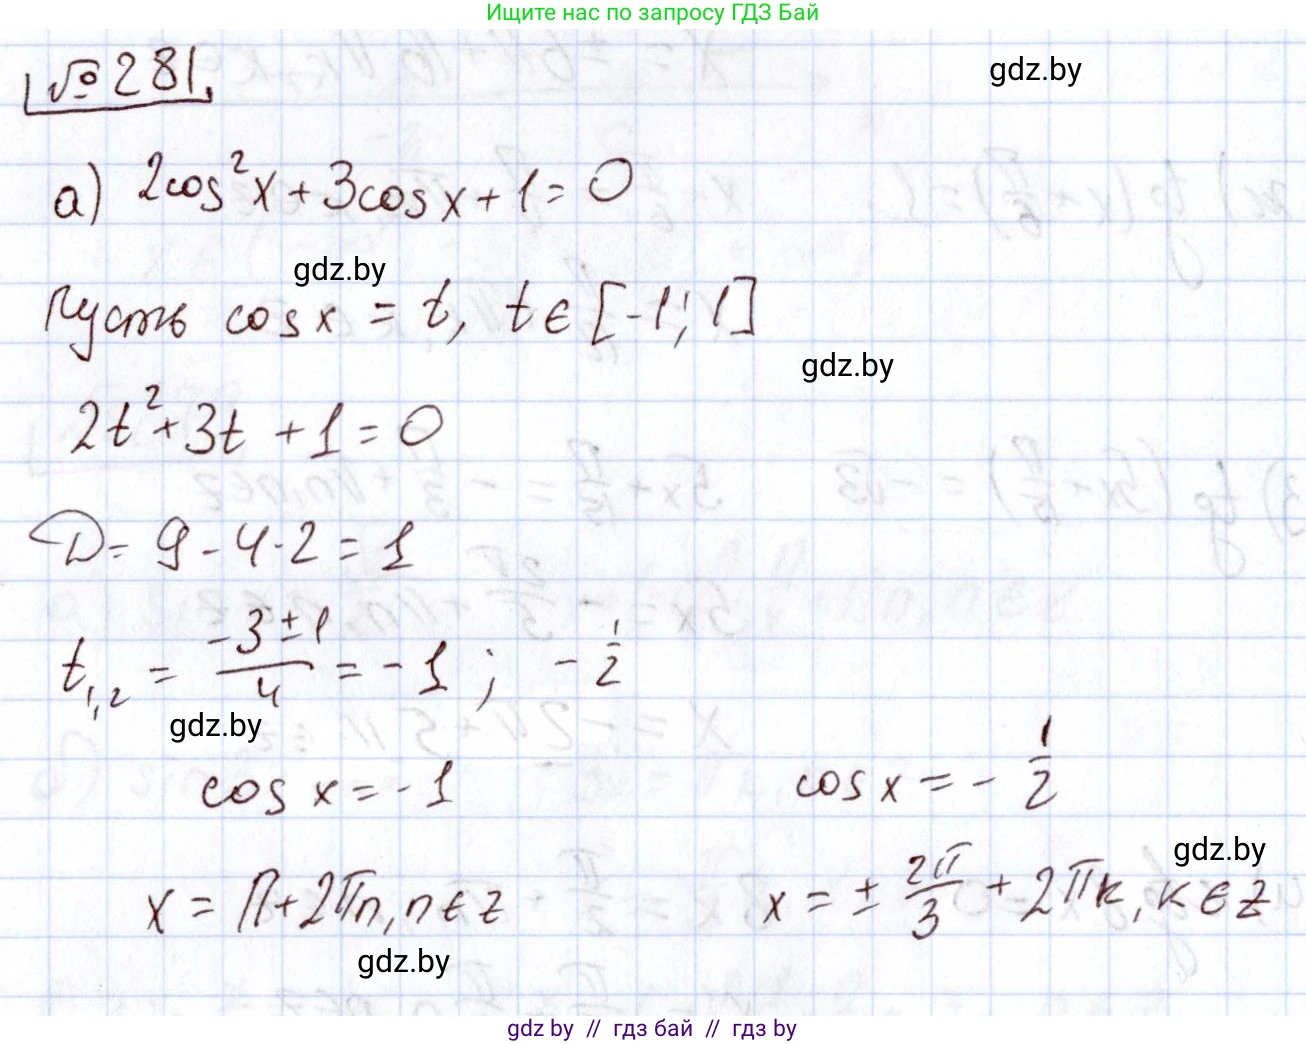 Ищите нас по запросу ГДЗ Бай
№ 281.
gdz.by
а) 2cos²x + 3cosx + 1 = 0
gdz.by
Пусть cosx = t, t ∈ [-1; 1]
gdz.by
2t² + 3t + 1 = 0
D = 9 - 4·2 = 1
t₁,₂ = (-3 ± 1)/4 = -1; -1/2
gdz.by
cosx = -1 cosx = -1/2
gdz.by
x = π + 2πn, n ∈ z x = ± 2π/3 + 2πk, k ∈ z
gdz.by
gdz by // гдз бай // гдз by